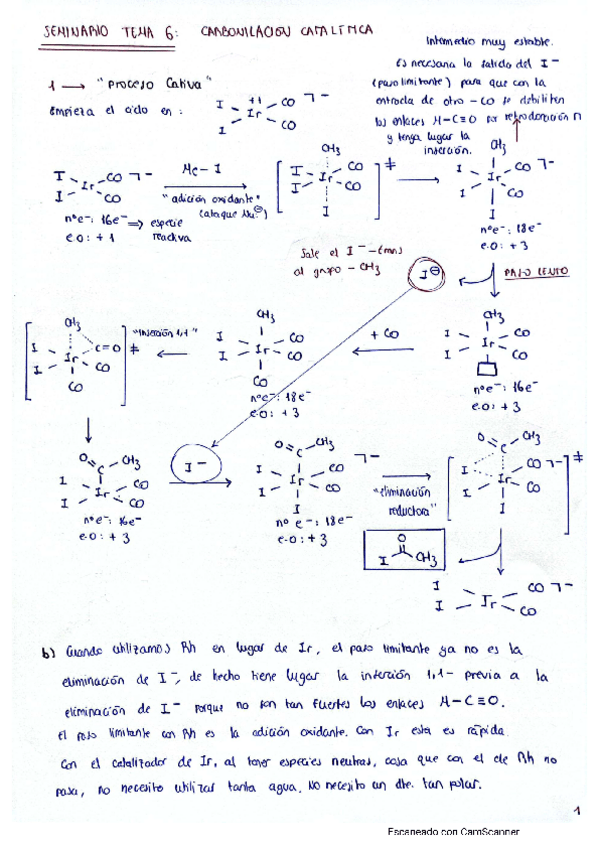 SEMINARIO TEMA 6: CARBONILACIÓN CATALÍTICA
Intermedio muy estable.
Es necesaria la salida del I⁻
(paso limitante) para que con la
entrada de otro -CO se debiliten
los enlaces M-C≡O por retrodonación π
y tenga lugar la
inserción.
1 → "Proceso Cativa"
Empieza el ciclo en:
I +1 CO ⁻
Ir
I CO
I CO ⁻
Ir
I CO
nºe⁻: 16e⁻ ⇒ especie
reactiva
e.o: +1
Me-I
"adición oxidante"
(ataque Nu:⊖)
CH₃
I CO ⁻ ≠
Ir
I CO
I
CH₃
I CO ⁻
Ir
I CO
I
nºe⁻: 18e⁻
e.o: +3
Sale el I⁻
al grupo -CH₃
I⊖
PASO LENTO
CH₃
I C=O ≠
Ir
I CO
CO
"Inserción 1,1"
CH₃
I CO
Ir
I CO
CO
nºe⁻: 18e⁻
e.o: +3
+ CO
CH₃
I CO
Ir
I CO
nºe⁻: 16e⁻
e.o: +3
O CH₃
C
I CO
Ir
I CO
nºe⁻: 16e⁻
e.o: +3
I⁻
O CH₃
C
I CO ⁻
Ir
I CO
I
nº e⁻: 18e⁻
e.o: +3
"eliminación
reductora"
O CH₃
C
I CO ⁻ ≠
Ir
I CO
I
O
I CH₃
I CO ⁻
Ir
I CO
b) Cuando utilizamos Rh en lugar de Ir, el paso limitante ya no es la
eliminación de I⁻, de hecho tiene lugar la inserción 1,1- previa a la
eliminación de I⁻ porque no son tan fuertes los enlaces M-C≡O.
El paso limitante con Rh es la adición oxidante. Con Ir esta es rápida.
Con el catalizador de Ir, al tener especies neutras, cosa que con el de Rh no
pasa, no necesito utilizar tanta agua. No necesito un dte. tan polar.
1
Escaneado con CamScanner